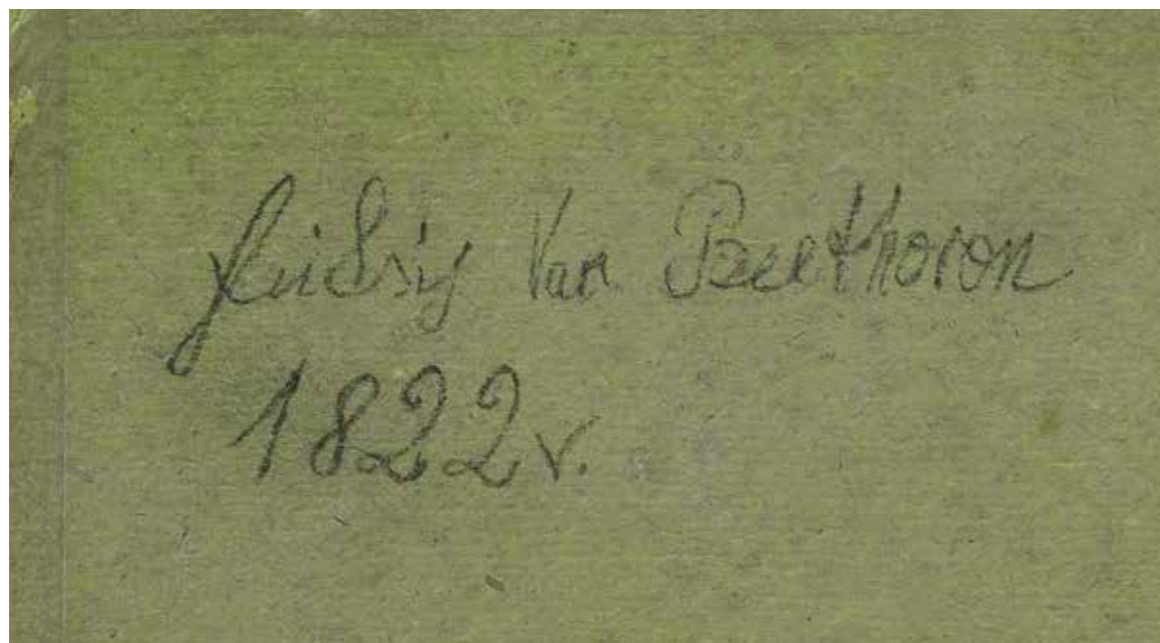 Luidvig Van Beethoven
1822 r.